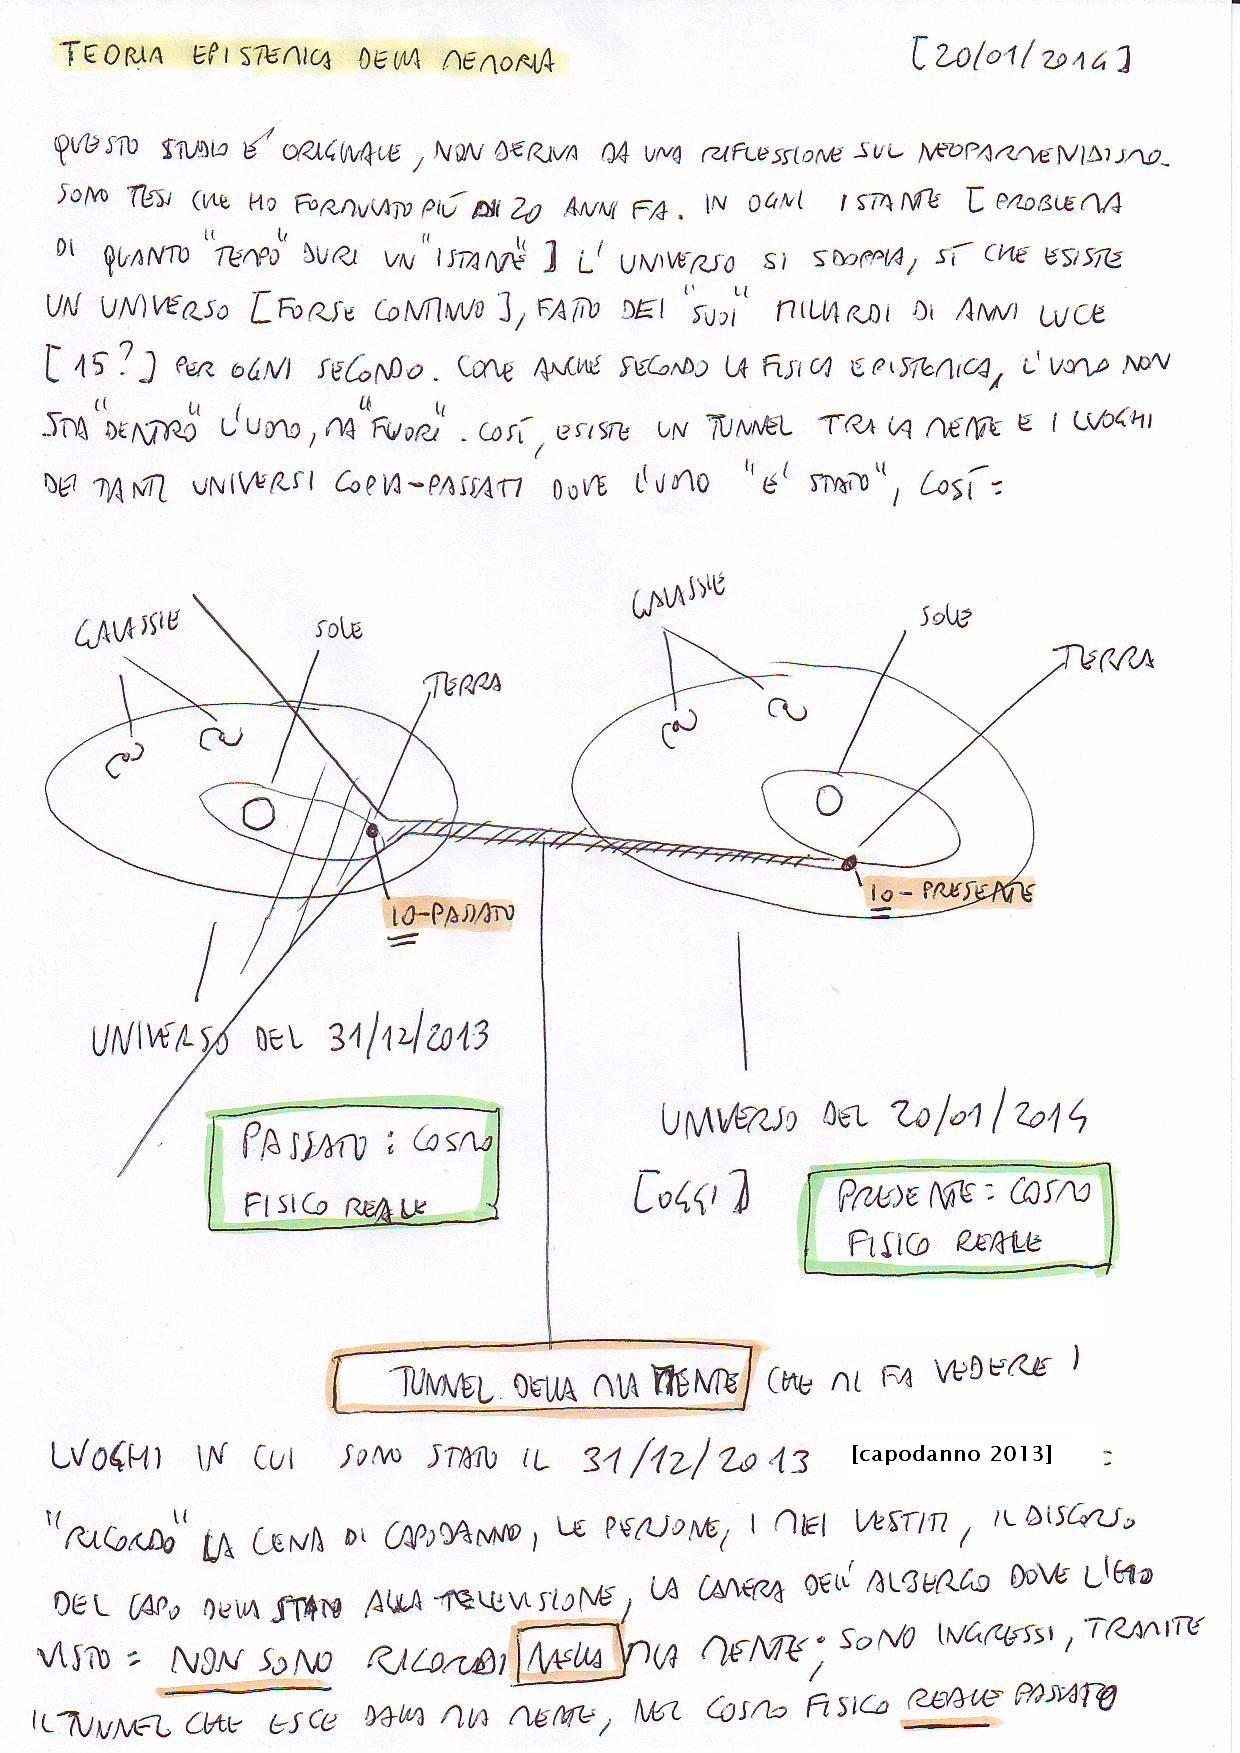 TEORIA EPISTEMICA DELLA MEMORIA
[20/01/2014]
QUESTO STUDIO E' ORIGINALE, NON DERIVA DA UNA RIFLESSIONE SUL NEOPARMENIDISMO.
SONO TESI CHE HO FORMULATO PIÙ DI 20 ANNI FA. IN OGNI ISTANTE [PROBLEMA
DI QUANTO "TEMPO" DURI UN "ISTANTE"] L'UNIVERSO SI SDOPPIA, SÌ CHE ESISTE
UN UNIVERSO [FORSE CONTINUO], FATTO DEI "SUOI" MILIARDI DI ANNI LUCE
[15?] PER OGNI SECONDO. COME ANCHE SECONDO LA FISICA EPISTEMICA, L'UOMO NON
STA "DENTRO" L'UOMO, MA "FUORI". COSÌ, ESISTE UN TUNNEL TRA LA MENTE E I LUOGHI
DEI TANTI UNIVERSI COPIA-PASSATI DOVE L'UOMO "E' STATO", COSÌ:
GALASSIE
SOLE
TERRA
GALASSIE
SOLE
TERRA
IO-PASSATO
IO-PRESENTE
UNIVERSO DEL 31/12/2013
PASSATO: COSMO
FISICO REALE
UNIVERSO DEL 20/01/2014
[OGGI]
PRESENTE: COSMO
FISICO REALE
TUNNEL DELLA MIA MENTE CHE MI FA VEDERE I
LUOGHI IN CUI SONO STATO IL 31/12/2013 [capodanno 2013] :
"RICORDO" LA CENA DI CAPODANNO, LE PERSONE, I MIEI VESTITI, IL DISCORSO
DEL CAPO DELLO STATO ALLA TELEVISIONE, LA CAMERA DELL'ALBERGO DOVE L'HO
VISTO: NON SONO RICORDI NELLA MIA MENTE; SONO INGRESSI, TRAMITE
IL TUNNEL CHE ESCE DALLA MIA MENTE, NEL COSMO FISICO REALE PASSATO